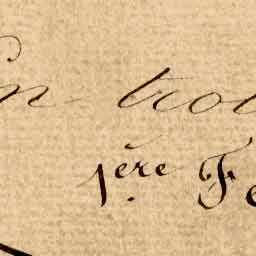 En trois
1ère Fe